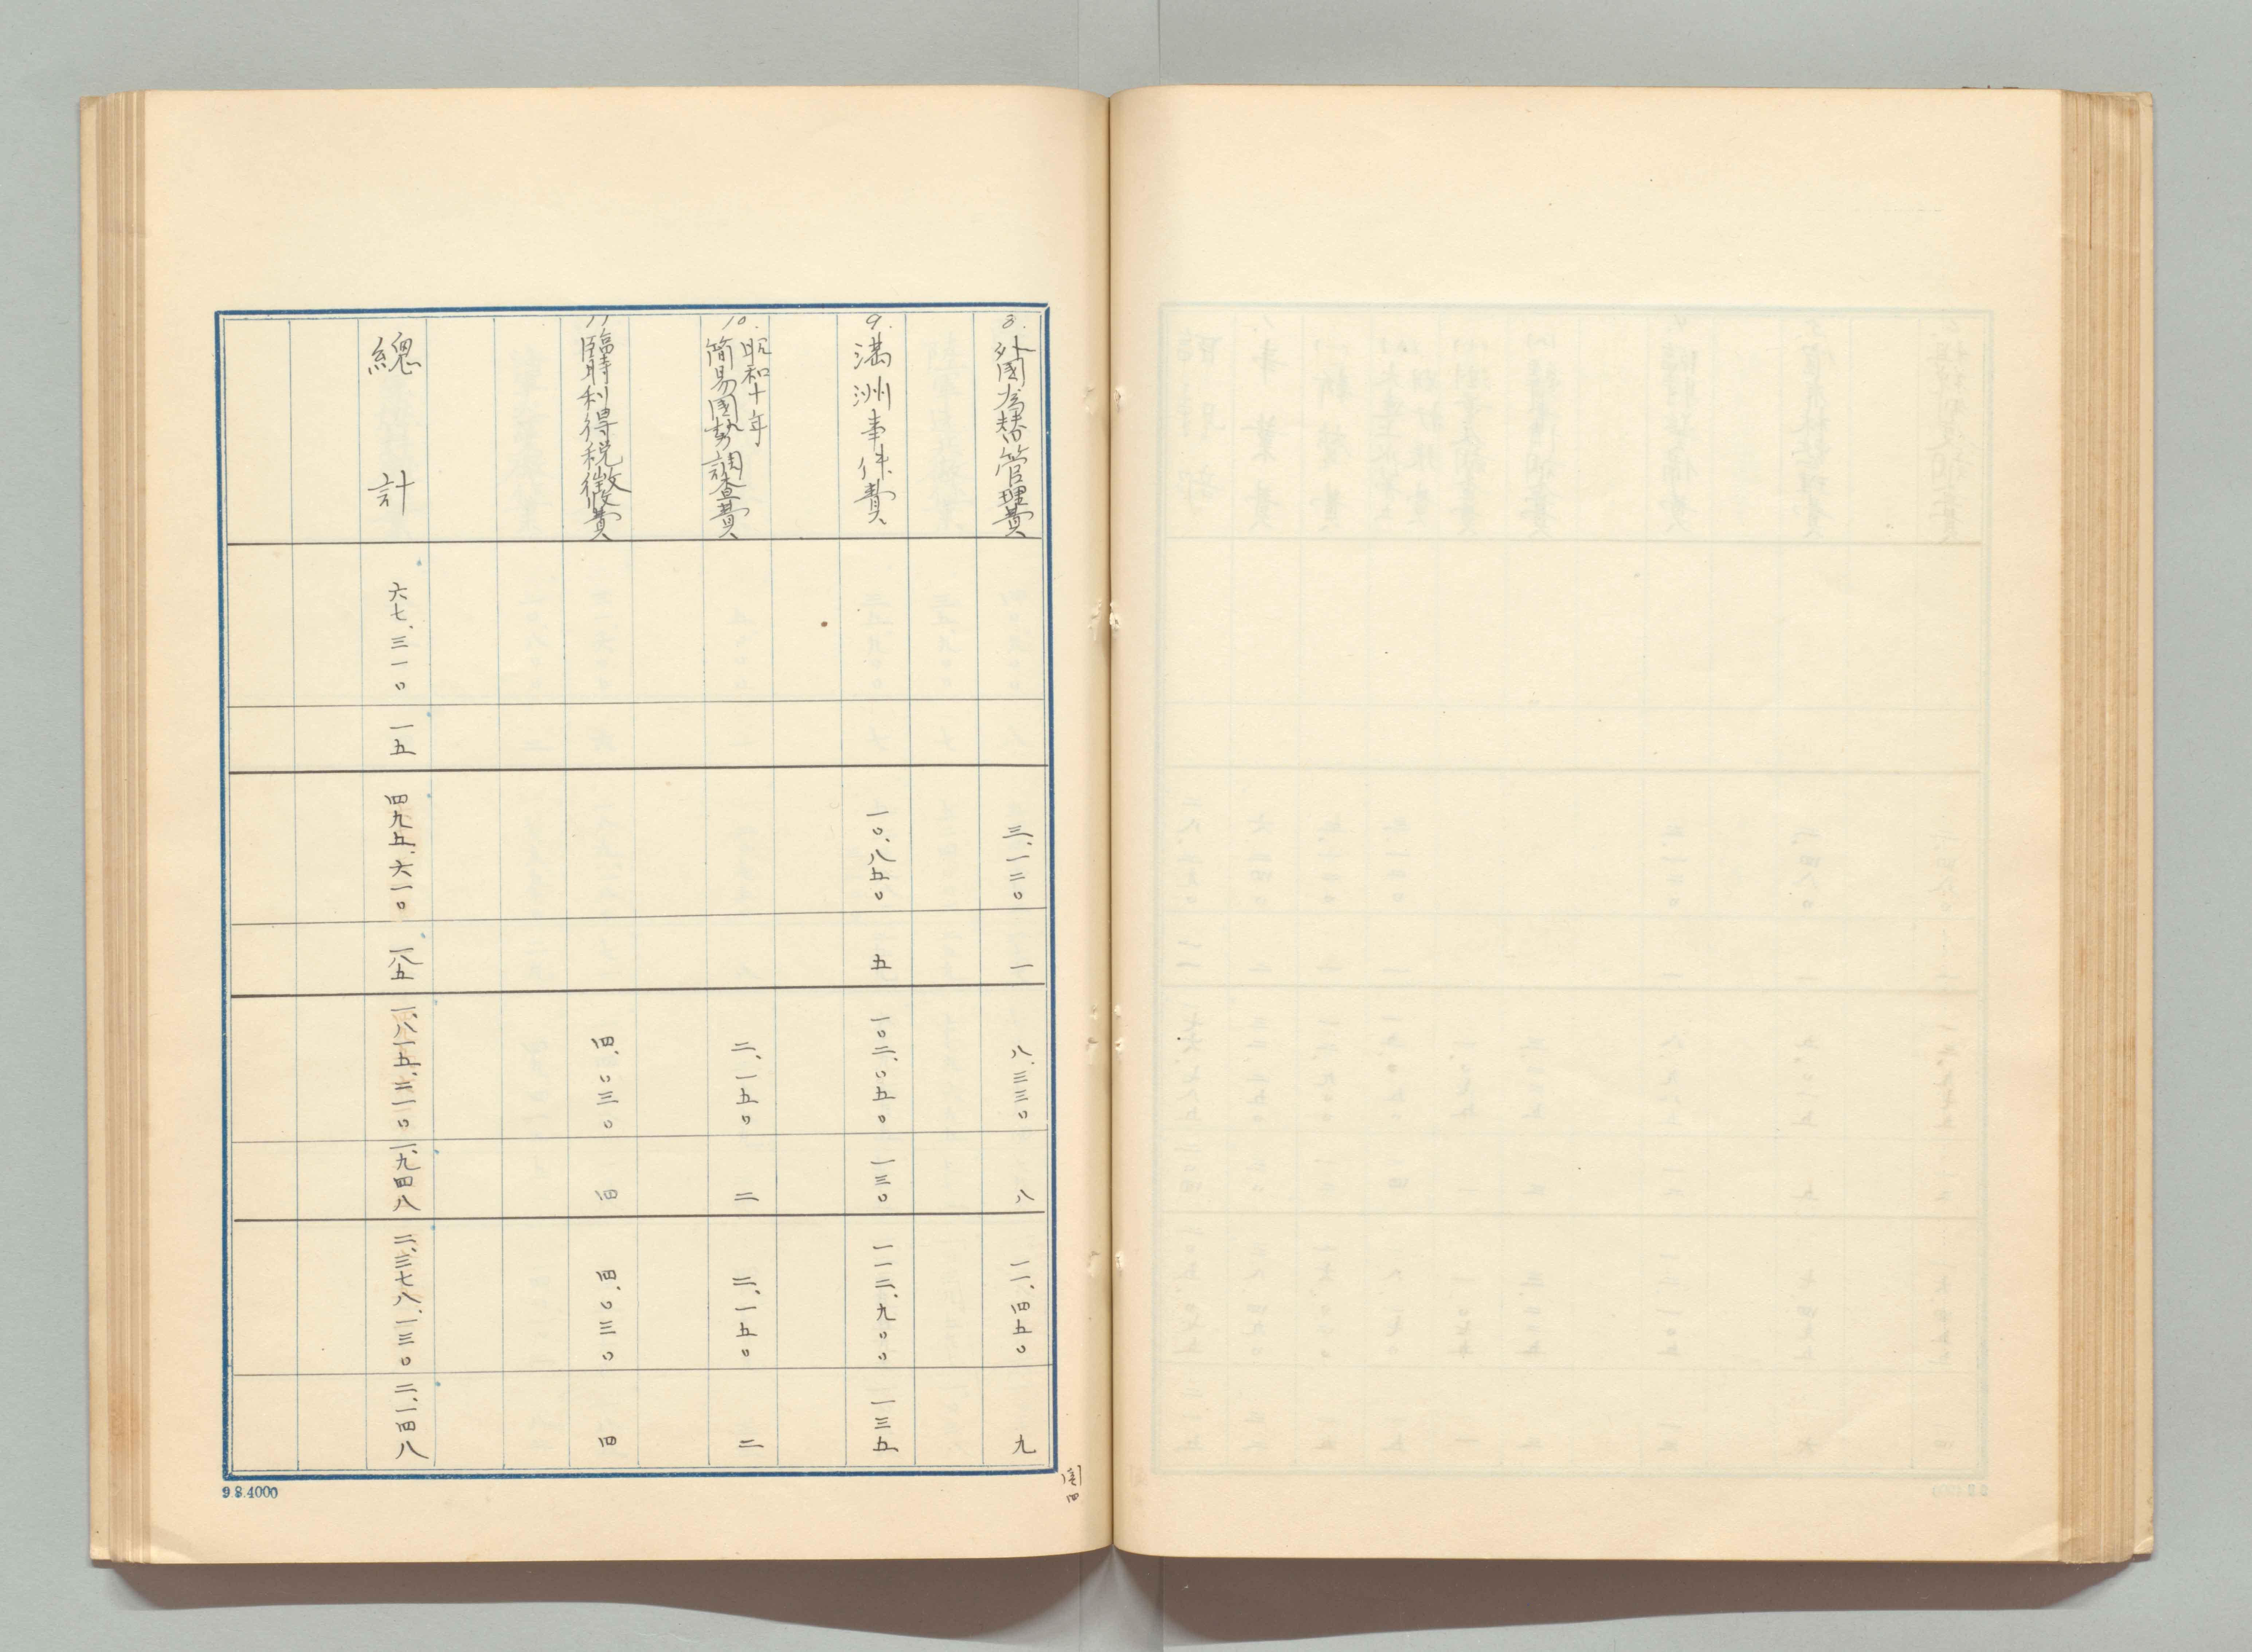 8. 外國為替管理費 三、一二〇 一 八、三三〇 八 一一、四五〇 九
9. 滿洲事件費 一〇、八五〇 五 一〇二、〇五〇 一三〇 一一二、九〇〇 一三五
10. 昭和十年
簡易國勢調査費 二、一五〇 二 二、一五〇 二
11 臨時利得税徴費 四、〇三〇 四 四、〇三〇 四
總計 六七、三一〇 一五 四九五、六一〇 一八五 一、八一五、二一〇 一、九四八 二、三七八、一三〇 二、一四八
9.8.4000